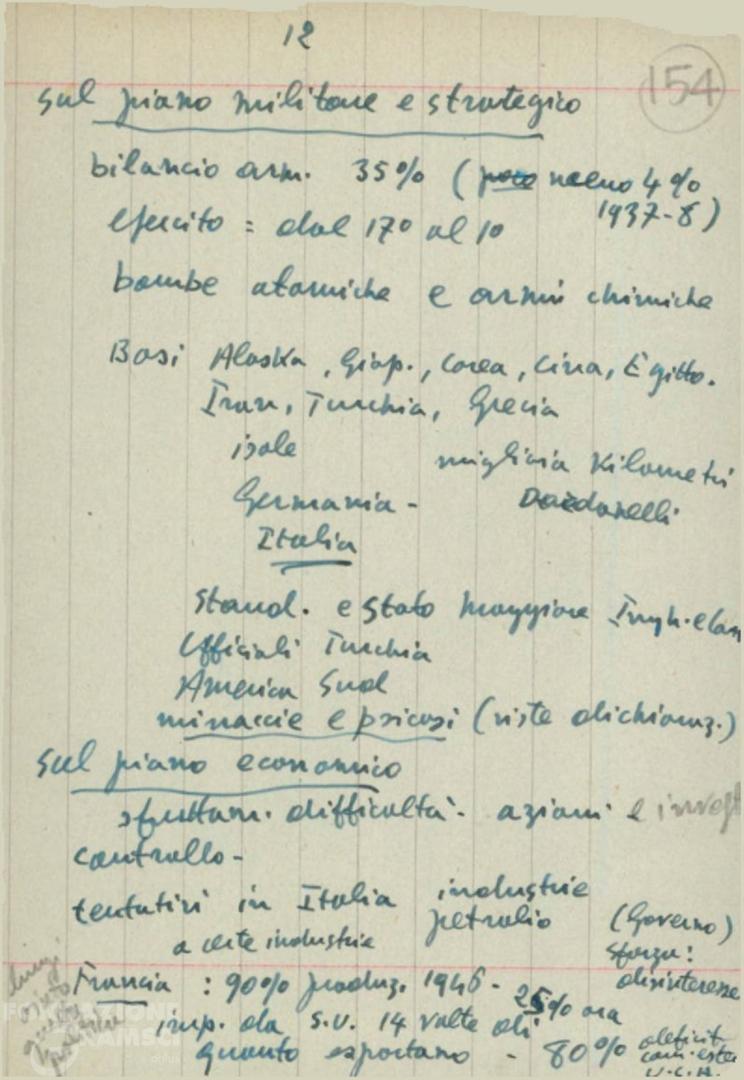 12
154
sul piano militare e strategico
bilancio arm. 35% (poco meno 4%
1937-8)
esercito = dal 17º al 1º
bombe atomiche e armi chimiche
Basi Alaska, Giap., Corea, Cina, Egitto.
Iran, Turchia, Grecia
isole migliaia Kilometri
Germania - Dardanelli
Italia
Stand. e Stato Maggiore
Ufficiali Turchia
America Sud
minaccie e psicosi (viste dichiaraz.)
sul piano economico
sfruttam. difficoltà. azioni e invest
controllo -
tentativi in Italia industrie
petrolio (Governo)
a certe industrie Sforza:
disinteresse
Francia : 90% produz. 1946 -
25% ora
imp. da S.U. 14 volte di
quanto esportano - 80% deficit
com. estero
FONDAZIONE
GRAMSCI